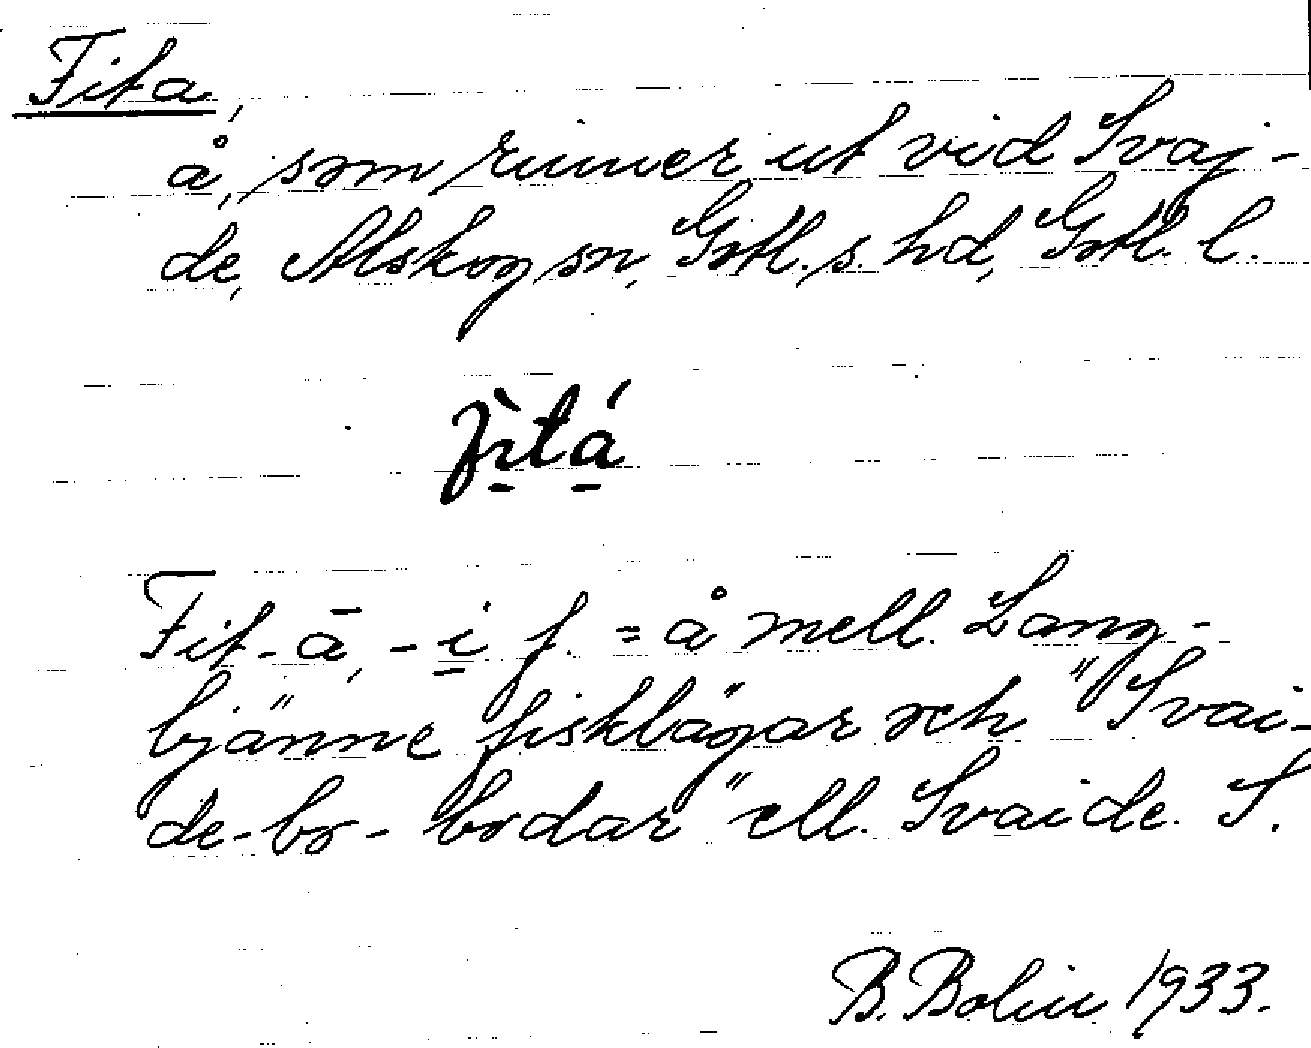 Fita,
å, som rinner ut vid Svaj-
de, Alskog sn, Gotl. s. hd, Gotl. l.
fı̀tá
Fit-ā, -i f. = å mell. Lang-
bjänne fisklägar och "Svai-
de-bo-bodar" ell. Svaide. S.
B. Bolin 1933.